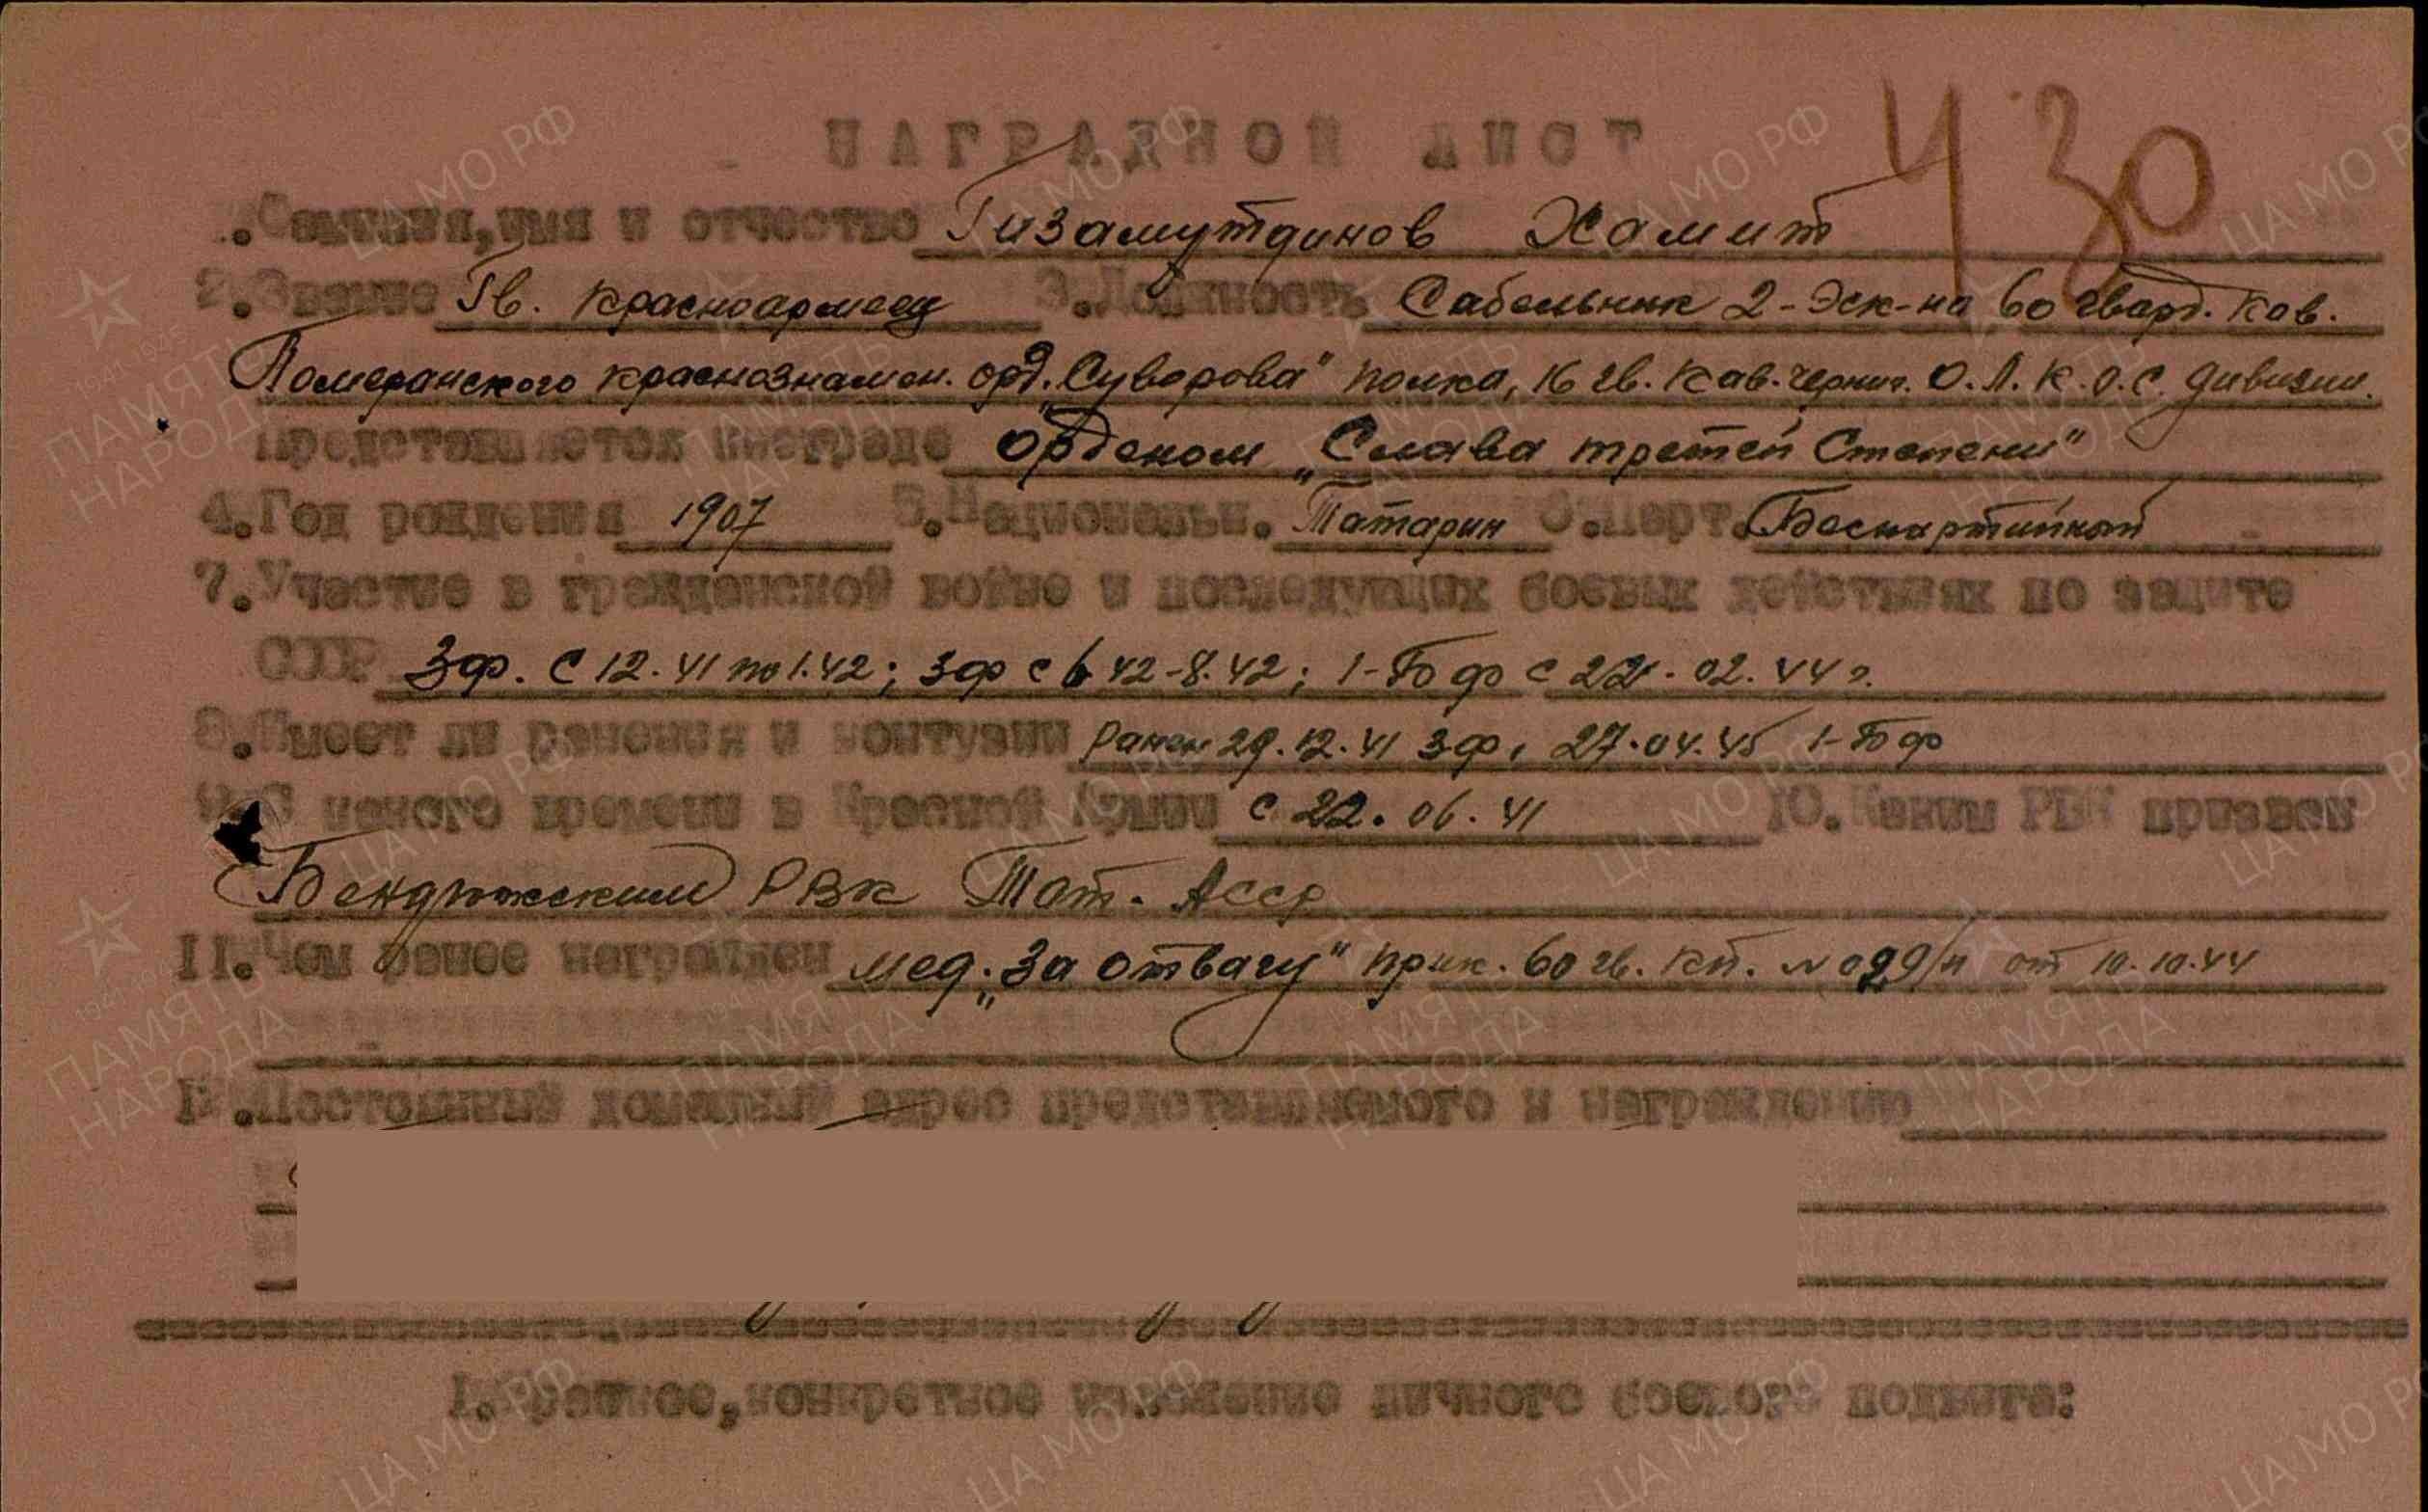 430
НАГРАДНОЙ ЛИСТ
1.Фамилия,имя и отчество Гизамутдинов Хамит
2.Звание Гв. Красноармеец 3.Должность Сабельник 2-Эск-на 60 гвард. Кав.
Померанского краснознамен. орд. „Суворова" полка, 16 гв. Кав. черниг. О.Л.К.О.С. дивизии.
Представляется к награде Орденом „Слава третей Степени"
4.Год рождения 1907 5.Национальн. Татарин 6.Парт. Беспартийный
7.Участие в гражданской войне и последующих боевых действиях по защите
СССР ЗФ. С 12.41 по 1.42; ЗФ с 6 42-8.42; 1-БФ с 22.02.44 г.
8.Имеет ли ранения и контузии Ранен 29.12.41 ЗФ, 27.04.45 1-БФ
9.С какого времени в Красной Армии с 22.06.41 10.Каким РВК призван
Бендюжским РВК Тат. АССР
11.Чем ранее награжден мед. „За отвагу" прик. 60 гв. кп. № 029/н от 10.10.44
12.Постоянный домашний адрес представляемого к награждению
1.Краткое,конкретное изложение личного боевого подвига:
ЦА МО РФ
ПАМЯТЬ НАРОДА